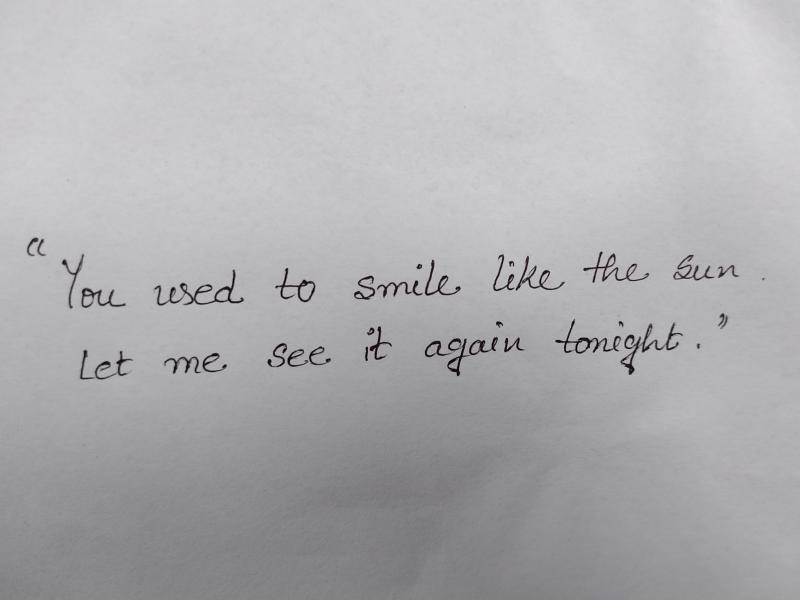 “You used to smile like the sun.
Let me see it again tonight.”